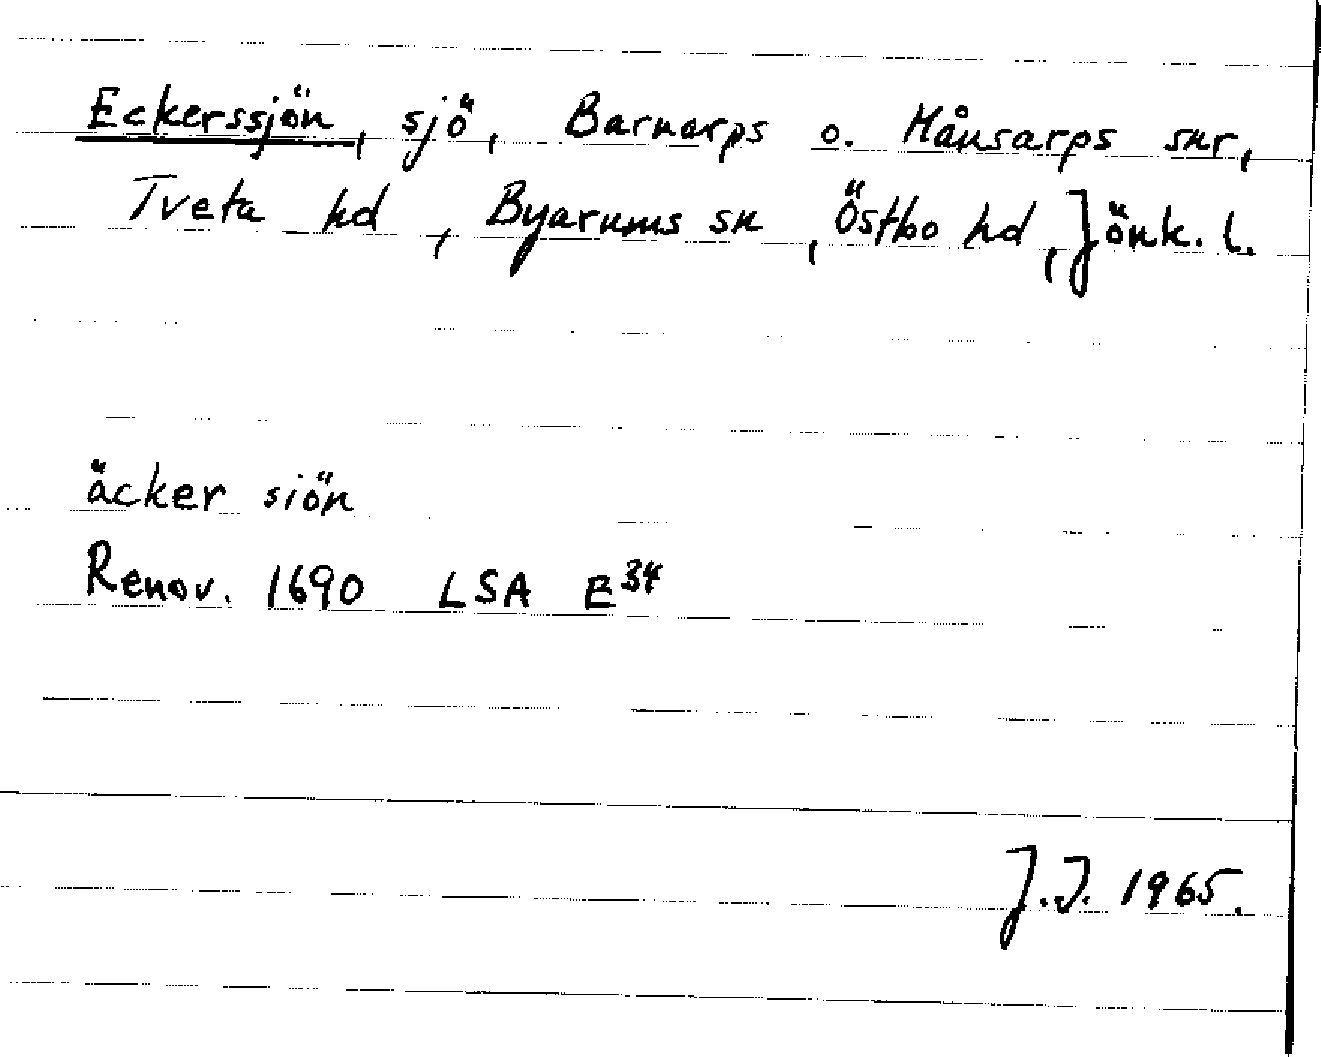 Eckerssjön, sjö, Barnarps o. Månsarps snr,
Tveta hd, Byarums sn, Östbo hd, Jönk. l.
äcker siön
Renov. 1690 LSA E³⁴
J.I. 1965.